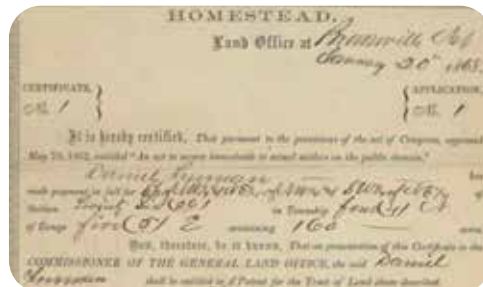 HOMESTEAD.
Land Office at Brownville Neb
January 20th 1868.
CERTIFICATE, No. 1 } { APPLICATION, No. 1
It is hereby certified, That pursuant to the provisions of the act of Congress, approved
May 20, 1862, entitled "An act to secure homesteads to actual settlers on the public domain,"
Daniel Freeman has
made payment in full for of
Section in Township four (4) N
of Range five (5) E containing 160 acres.
Now, therefore, be it known, That on presentation of this Certificate to the
COMMISSIONER OF THE GENERAL LAND OFFICE, the said Daniel
Freeman shall be entitled to a Patent for the Tract of Land above described